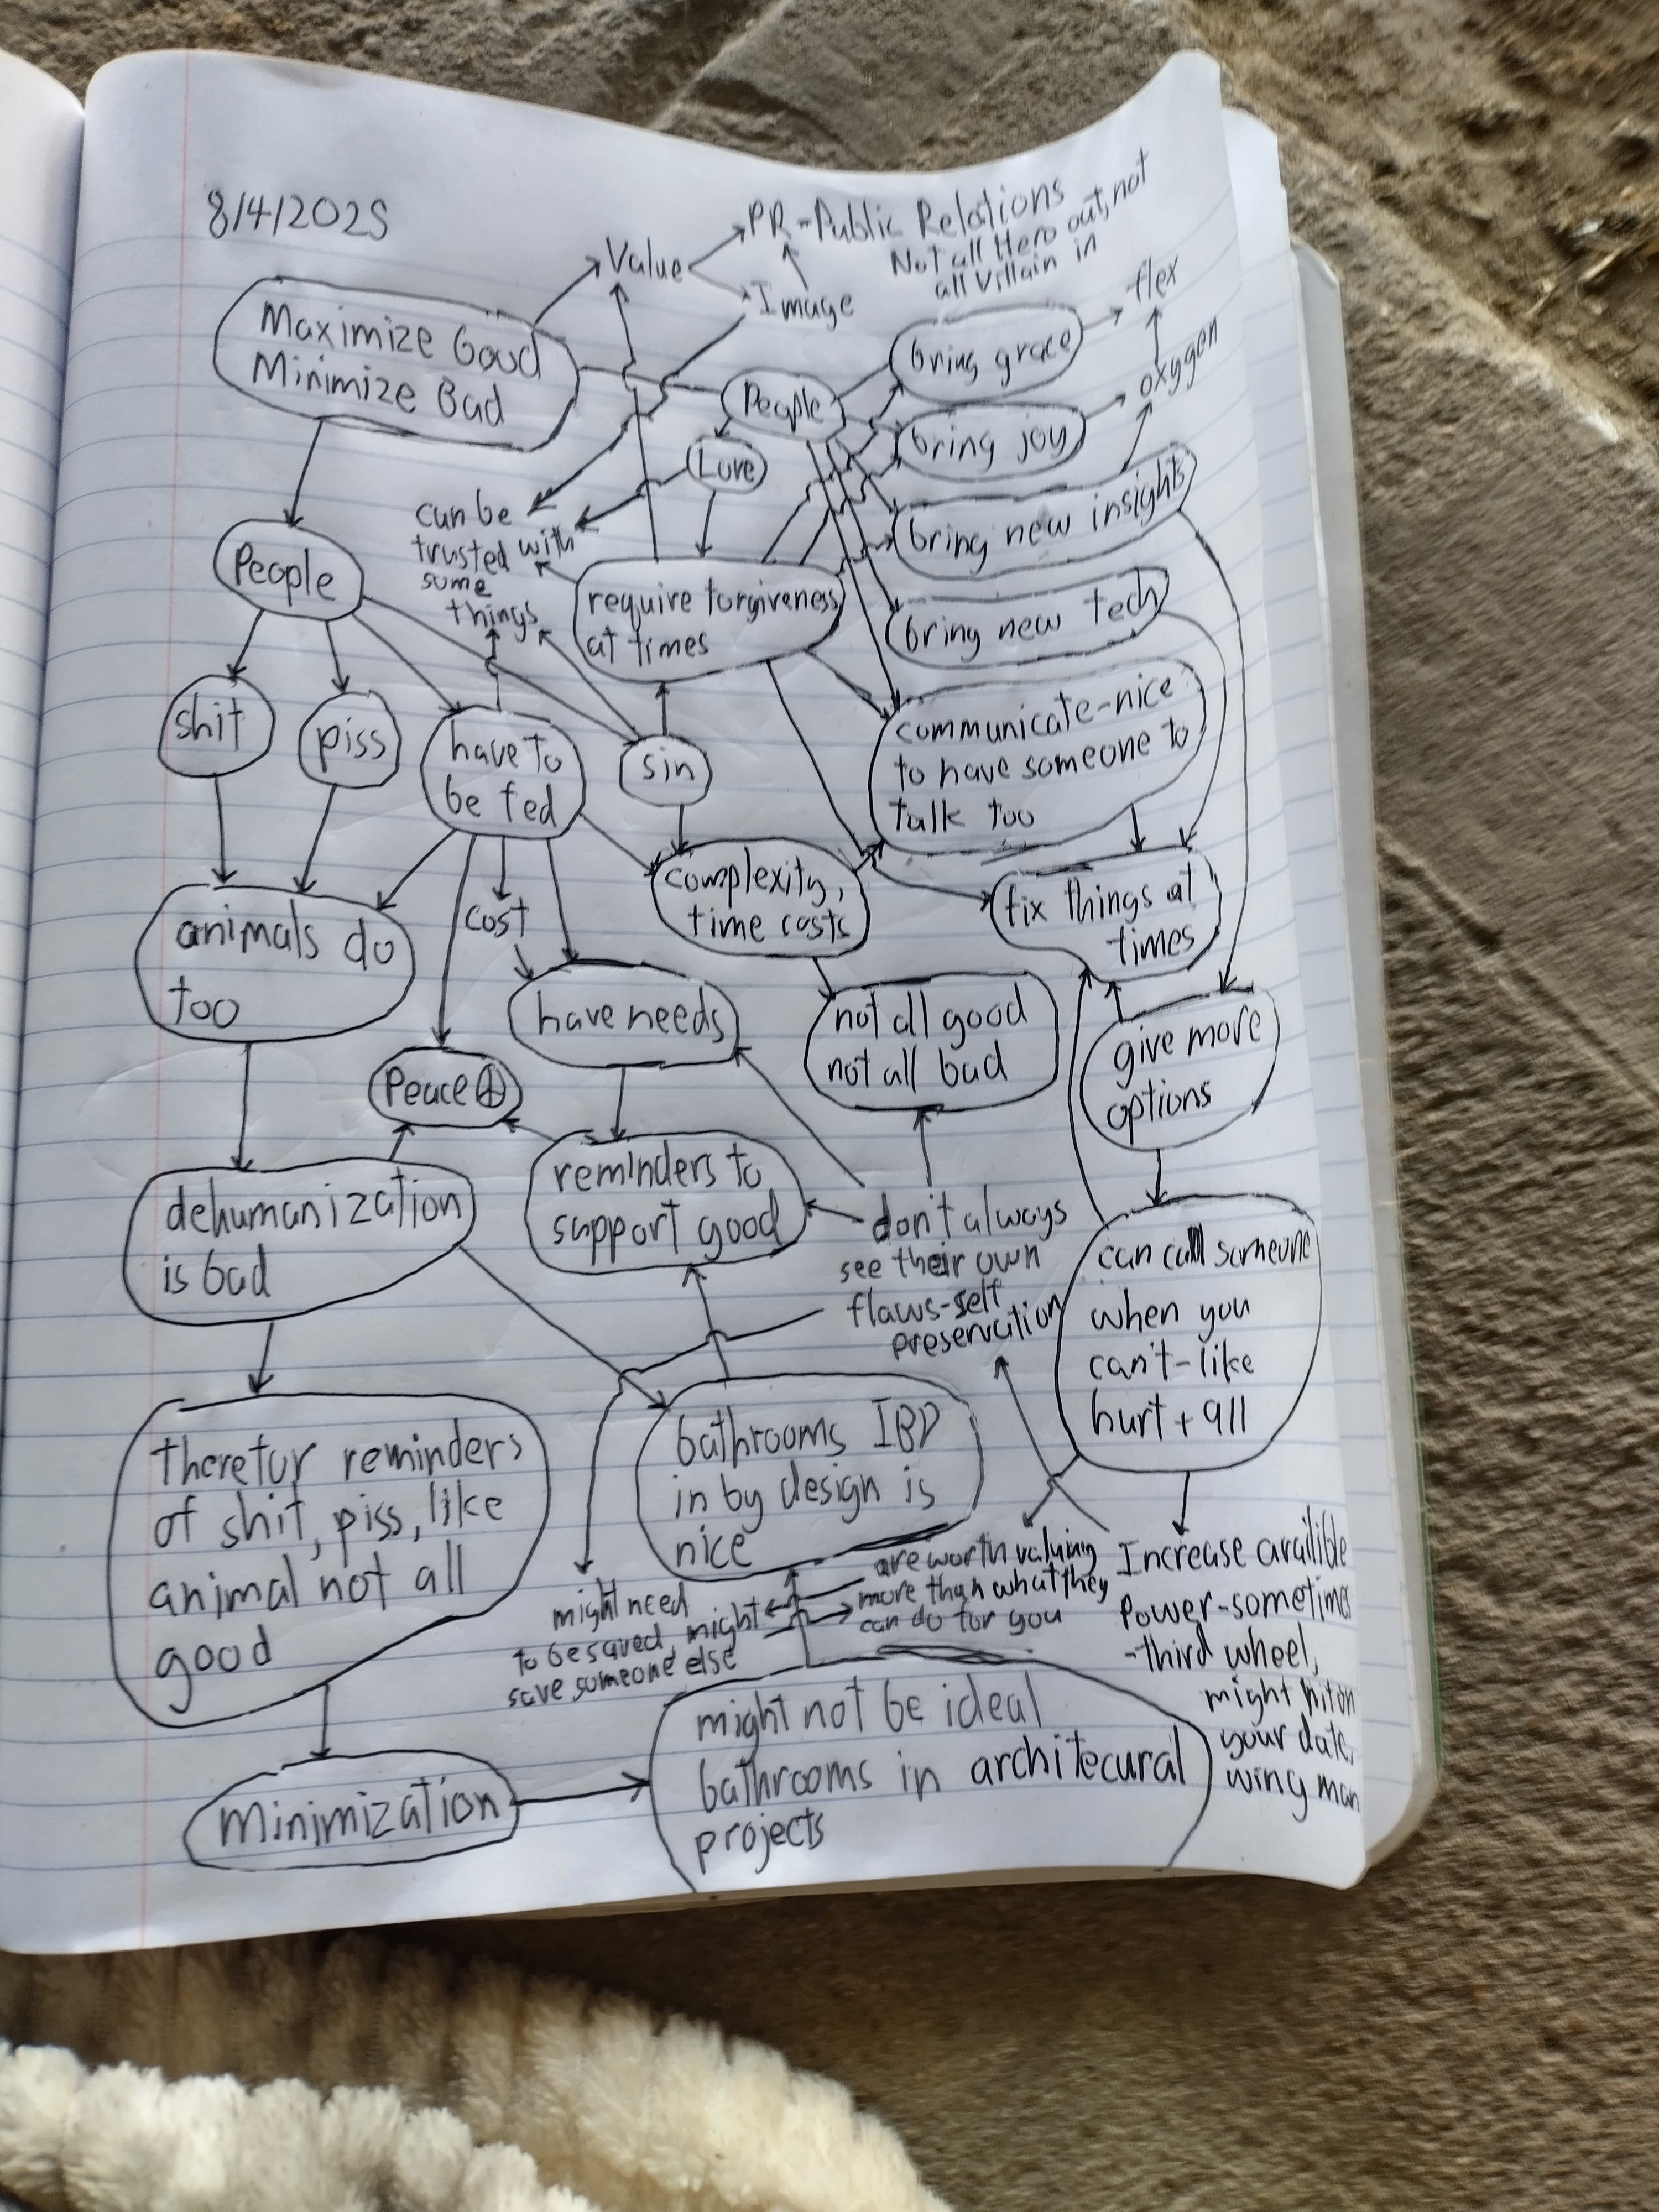 8/4/2025
Value
PR-Public Relations
Not all Hero out, not
all villain in
Image
flex
Maximize Good
Minimize Bad
People
bring grace
oxygen
Love
bring joy
can be
trusted with
some
things
bring new insights
People
require forgiveness
at times
bring new tech
shit
piss
have to
be fed
sin
communicate-nice
to have someone to
talk too
complexity,
time costs
fix things at
times
animals do
too
cost
have needs
not all good
not all bad
give more
options
Peace
reminders to
support good
dehumanization
is bad
don't always
see their own
flaws-self
preservation
can call someone
when you
can't-like
hurt + 911
therefor reminders
of shit, piss, like
animal not all
good
bathrooms IBD
in by design is
nice
might need
to be saved, might
save someone else
are worth valuing
more than what they
can do for you
Increase availible
Power-sometimes
-third wheel,
might hit on
your date,
wing man
minimization
might not be ideal
bathrooms in architecural
projects